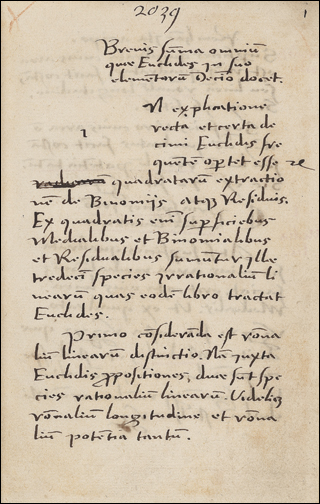 2039
1
Breuis sum̄a omniū
quæ Euclides in suo
elementorū Decīo docet.
N explicatione
1
recta et certa de
cimi Euclidis fre
quēte oportet esse re
quadratarū extractio
nē de Binomijs atq; Residuis.
Ex quadratis eīn supficiebus
Medialibus et Binomialibus
et Residualibus sumūtur ille
tredecī species irrationaliū li
nearum quas eodē libro tractat
Euclides.
Primo cōsiderāda est rōna
liū linearum distinctio. Nā iuxta
Euclidis ꝓpositiones, duæ sūt spe
cies rationaliū linearum. Videlicꝫ
rōnalium longitudine et rōna
liū potētia tantū.